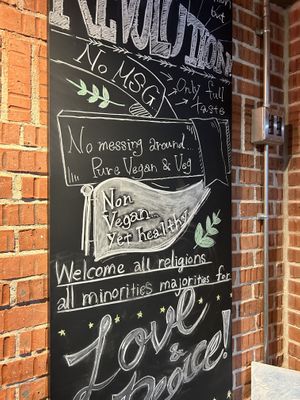 REVOLUTION
No MSG
Only full
Taste
No messing around...
Pure Vegan & Veg
Non
Vegan...
yet healthy
Welcome all religions
all minorities majorities for
Love
&
Peace!